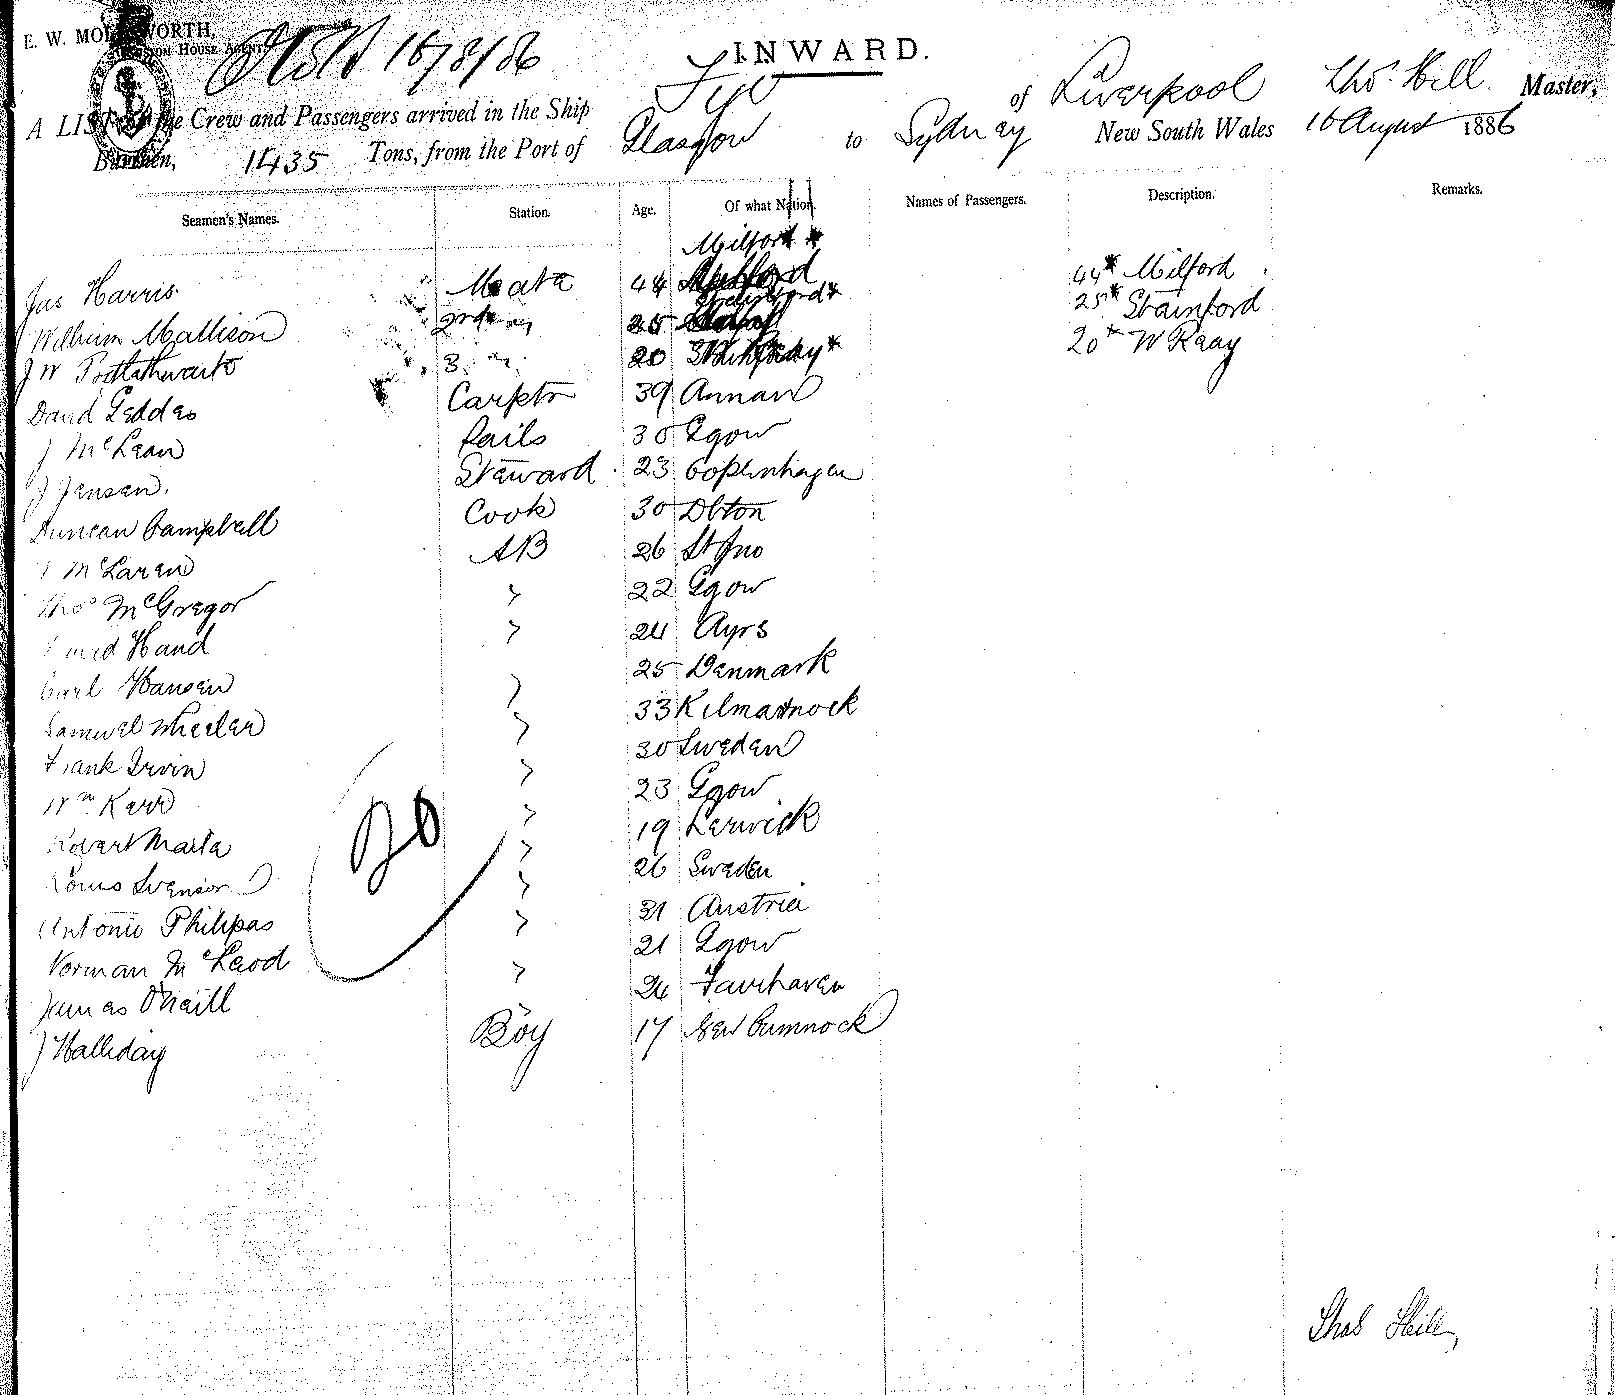 E. W. MOL WORTH,
House Agent
16/8/86
INWARD.
A LIST of the Crew and Passengers arrived in the Ship of Liverpool Thos. Hill Master,
Burthen, 1435 Tons, from the Port of Glasgow to Sydney New South Wales 16 August 1886
Seamen's Names. Station. Age. Of what Nation. Names of Passengers. Description. Remarks.
Milford *
Jas Harris 44 44* Milford
William Mallison 2nd " 25 25* Stainford
J W Postlethwaite 3 " 20 20* W
David Geddes Carptr 39 Annan
J McLean Sails 30 Ggow
J Jensen. Steward 23 Copenhagen
Duncan Campbell Cook 30
McLaren AB 26 St Jno
Thos McGregor " 22 Ggow
David Hand " 24 Ayrs
Carl Hansen 25 Denmark
Samuel Wheeler " 33 Kilmarnock
Frank Irvin " 30 Sweden
Wm Kerr " 23 Ggow
Robert " 19 Lerwick
Louis Svenson " 26 Sweden
Antonio Philipas " 31 Austria
Norman McLeod " 21 Ggow
James O'Neill " 24 Fairhaven
J Halliday Boy 17 New Cumnock
20
Thos Hill